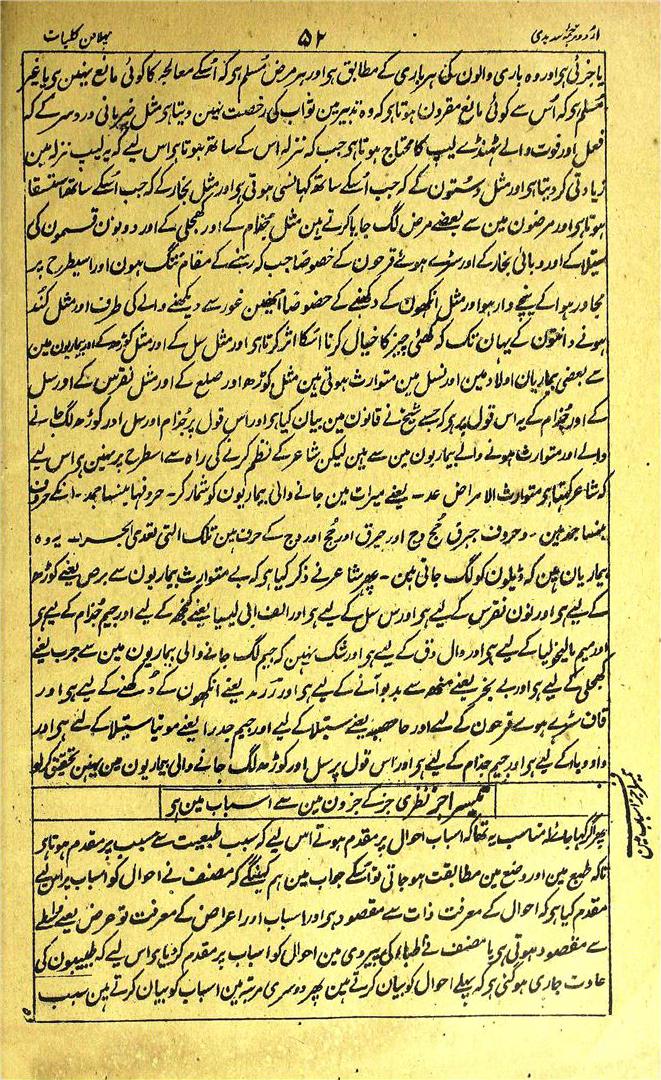 اردو ترجمہ سدیدی ۵۲ پہلا فن کلیات
یا جزئی ہی اور وہ باری والون کی ہر باری کے مطابق ہی اور ہر مرض مُسلم ہی کہ اُسکے معالجہ کا کوئی مانع نہین ہی یا غیر
مُسلم ہی کہ اُس سے کوئی مانع مقرون ہوتا ہی کہ وہ تدبیر مین ثواب کی رخصت نہین دیتا ہی مثل درد سر کے کہ
فعل اور قوت والے ٹھنڈے لیپ کا محتاج ہوتا ہی جب کہ نزلہ اس کے ساتھ ہوتا ہی اس لیے کہ یہ لیپ نزلہ مین
زیادتی کر دیتا ہی اور مثل دستون کے کہ جب اُسکے ساتھ کھانسی ہوتی ہی اور مثل بخار کے کہ جب اُسکے ساتھ استسقا
ہوتا ہی اور مرضون مین سے بعضے مرض لگ جایا کرتے ہین مثل جُذام کے اور کھجلی کے اور دونون قسمون کی
سیتلا کے اور وبائی بخار کے اور سڑے ہوئے قرحون کے خصوصا جب کہ رہنے کے مقام تنگ ہون اور اسیطرح پر
مجاور ہوا کے نیچے وار ہو اور مثل انکھون کے دکھنے کے خصوصا اُنھین غور سے دیکھنے والے کی طرف اور مثل کُند
ہونے دانتون کے یہان تک کہ کھٹی چیز کا خیال کرنا اسکا اثر کرتا ہی اور مثل سل کے اور مثل کوڑھ کے اور بیماریون مین
سے بعضی بیماریان اولاد مین اور نسل مین متوارث ہوتی ہین مثل کوڑھ اور صلع کے اور مثل نقرس کے اور سل
کے اور جُذام کے یہ اس قول پر ہی کہ جسے شیخ نے قانون مین بیان کیا ہی اور اُس قول پر جُذام اور سل اور کوڑھ لگ جانے
والے اور متوارث ہونے والے بیماریون مین سے ہین لیکن شاعر کے نظم کرنے کی راہ سے اسطرح پر نہین ہی اس لیے
کہ شاعر کہتا ہی متوارث الامراض عد۔ یعنے میراث مین جانے والی بیماریون کو شمار کر۔ حروفہا۔ انکے حروف
ہین ۔ وحروف جبرق اور جبرق اور کے حرف ہین تلک التی تعدی الجسد۔ یہ وہ
بیماریان ہین کہ ڈیلون کو لگ جاتی ہین ۔ پھر شاعر نے ذکر کیا ہی کہ بے متوارث بیماریون سے برص یعنے کوڑھ
کے لیے ہی اور نون نقرس کے لیے ہی اور س سل کے لیے ہی اور الف یعنے گنج کے لیے اور جیم جُذام کے لیے ہی
اور میم مالیخولیا کے لیے ہی اور دال دق کے لیے ہی اور شک نہین کہ جیم لگ جانے والی بیماریون مین سے جرب یعنے
کھجلی کے لیے ہی اور بے بخر یعنے منھ سے بدبو آنے کے لیے ہی اور رمد یعنے انکھون کے دُکھنے کے لیے ہی اور
قاف سڑے ہوے قرحون کے لیے اور حا حصبہ یعنے سیتلا کے لیے اور جیم جدرا یعنے موتیا سیتلا کے لئے ہی اور
واو وباء کے لیے ہی اور جیم جذام کے لیے ہی اور اس قول پر سل اور کوڑھ لگ جانے والی بیماریون مین نہین تحقیق
تیسرا جز نظری جز کے جزون مین سے اسباب مین ہی
پھر اگر کہا جائے مناسب یہ تھا کہ اسباب احوال پر مقدم ہوتے اس لیے کہ سبب طبیعت سے سبب پر مقدم ہوتا ہی
تاکہ طبع مین اور وضع مین مطابقت ہو جاتی تو اُسکے جواب مین ہم کہینگے کہ مصنف نے احوال کو اسباب پر اس لیے
مقدم کیا ہی کہ احوال کے معرفت ذات سے مقصود ہی اور اسباب اور اعراض کے معرفت تو عرض یعنے واسطے
سے مقصود ہوتی ہی یا مصنف نے اطباء کی پیروی مین احوال کو اسباب پر مقدم کر دیا ہی اس لیے کہ طبیبون کی
عادت جاری ہو گئی ہی کہ پہلے احوال کو بیان کرتے ہین پھر دوسری مرتبہ مین اسباب کو بیان کرتے ہین سبب